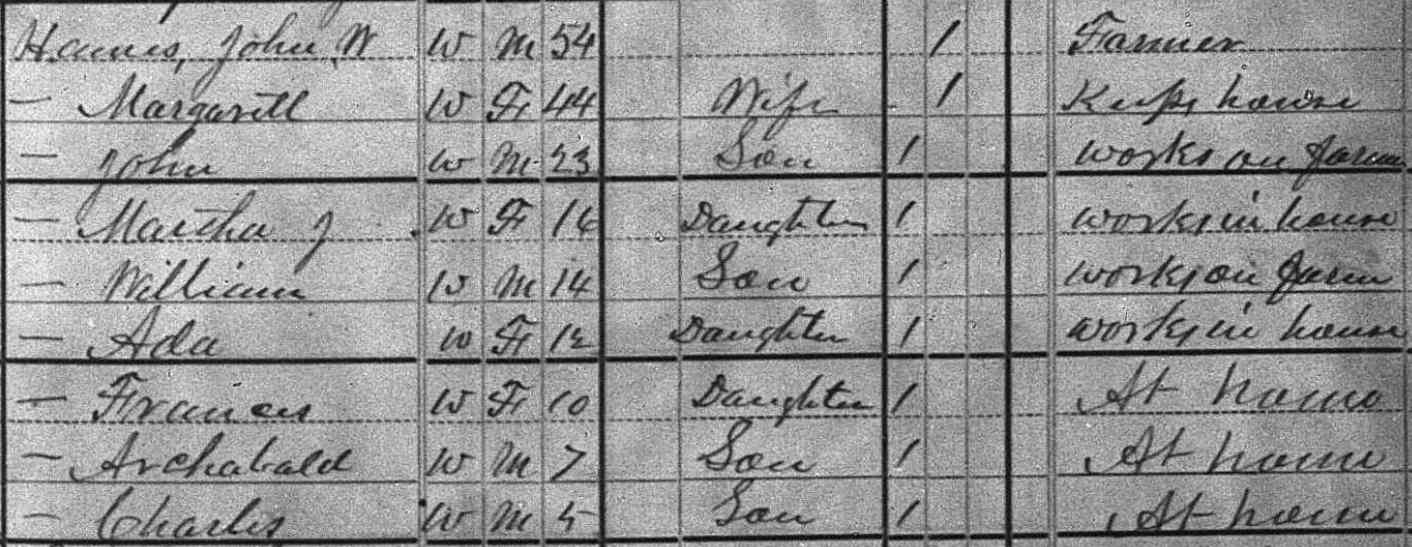 Hames, John W W M 54 / Farmer
— Margarett W F 44 Wife / Keeps house
— John W M 23 Son / works on farm
— Martha J W F 16 Daughter / works in house
— William W M 14 Son / works on farm
— Ada W F 12 Daughter / works in house
— Frances W F 10 Daughter / At home
— Archabald W M 7 Son / At home
— Charles W M 5 Son / At home